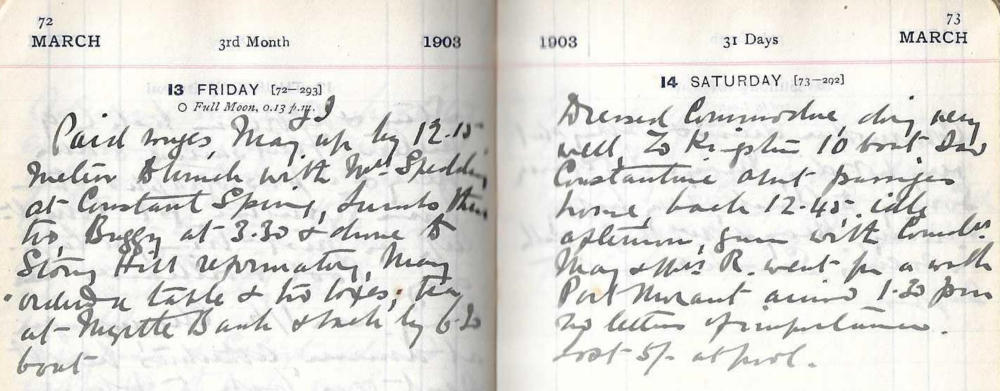 72
MARCH 3rd Month 1903
13 FRIDAY [72–293]
○ Full Moon, 0.13 p.m.
Paid wages, May up by 12.15
at Constant Spring,
too, Buggy at 3.30 & drove to
Stony Hill reformatory, May
ordered a table & two boxes; tea
at Myrtle Bank & back by 6.30
boat
73
1903 31 Days MARCH
14 SATURDAY [73–292]
Dressed Commodore, doing very
well, To Kingston 10 boat Saw
Constantine about passages
home, back 12.45. idle
afternoon, gun with
May & Mrs R. went for a walk
Port Morant arrived 1.30 from
no letters of importance.
Lost 5/- at pool.